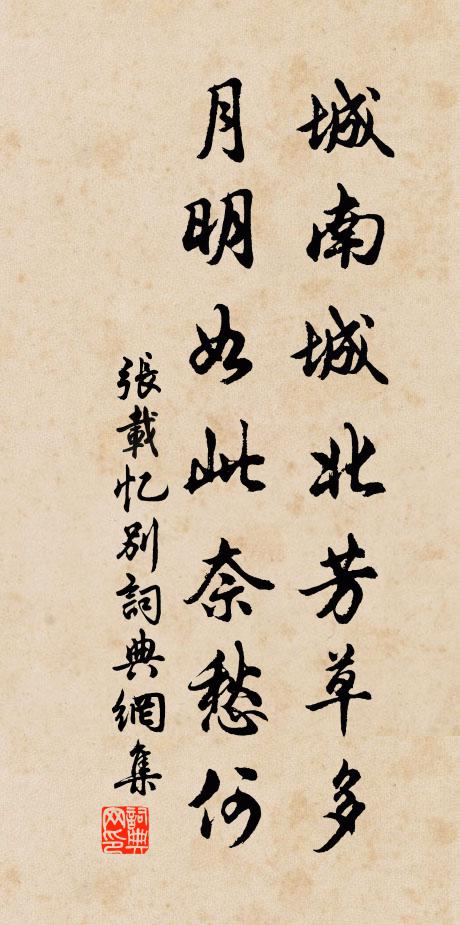 城南城北芳草多
月明如此奈愁何
張載忆別詞典網集
詞典网印